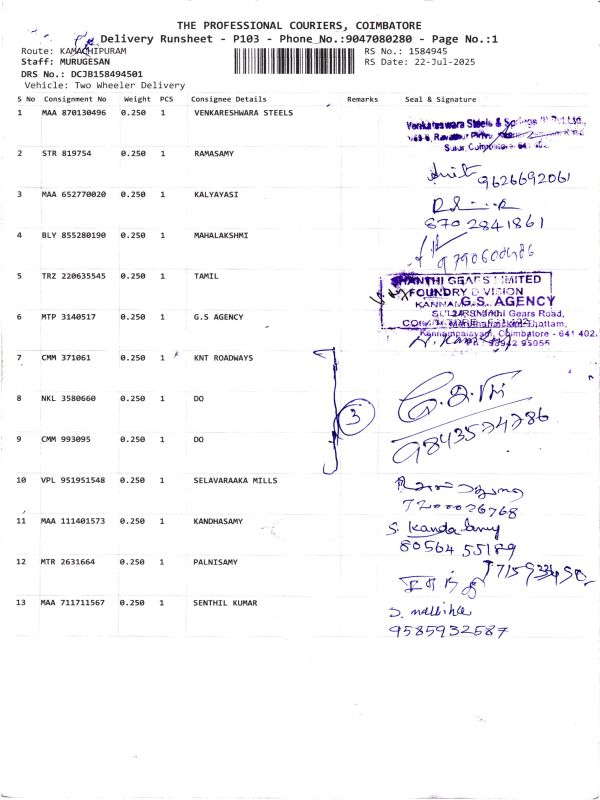 THE PROFESSIONAL COURIERS, COIMBATORE
Delivery Runsheet - P103 - Phone_No.:9047080280 - Page No.:1
Route: KAMACHIPURAM RS No.: 1584945
Staff: MURUGESAN RS Date: 22-Jul-2025
DRS No.: DCJB158494501
Vehicle: Two Wheeler Delivery
S No Consignment No Weight PCS Consignee Details Remarks Seal & Signature
1 MAA 870130496 0.250 1 VENKARESHWARA STEELS
Venkateswara Steels & Springs (I) Pvt Ltd.,
Sulur, Coimbatore- 641 402.
2 STR 819754 0.250 1 RAMASAMY
9626692061
3 MAA 652770020 0.250 1 KALYAYASI
8702841861
4 BLY 855280190 0.250 1 MAHALAKSHMI
5 TRZ 220635545 0.250 1 TAMIL
SHANTHI GEARS LIMITED
FOUNDRY DIVISION
6 MTP 3140517 0.250 1 G.S AGENCY
G.S. AGENCY
Shanthi Gears Road,
Kannampalayam, Coimbatore - 641 402.
7 CMM 371061 0.250 1 KNT ROADWAYS
8 NKL 3580660 0.250 1 DO
3
9 CMM 993095 0.250 1 DO
9843574786
10 VPL 951951548 0.250 1 SELAVARAAKA MILLS
7200026768
11 MAA 111401573 0.250 1 KANDHASAMY
S. Kandasamy
80564 55189
12 MTR 2631664 0.250 1 PALNISAMY
13 MAA 711711567 0.250 1 SENTHIL KUMAR
9585932587